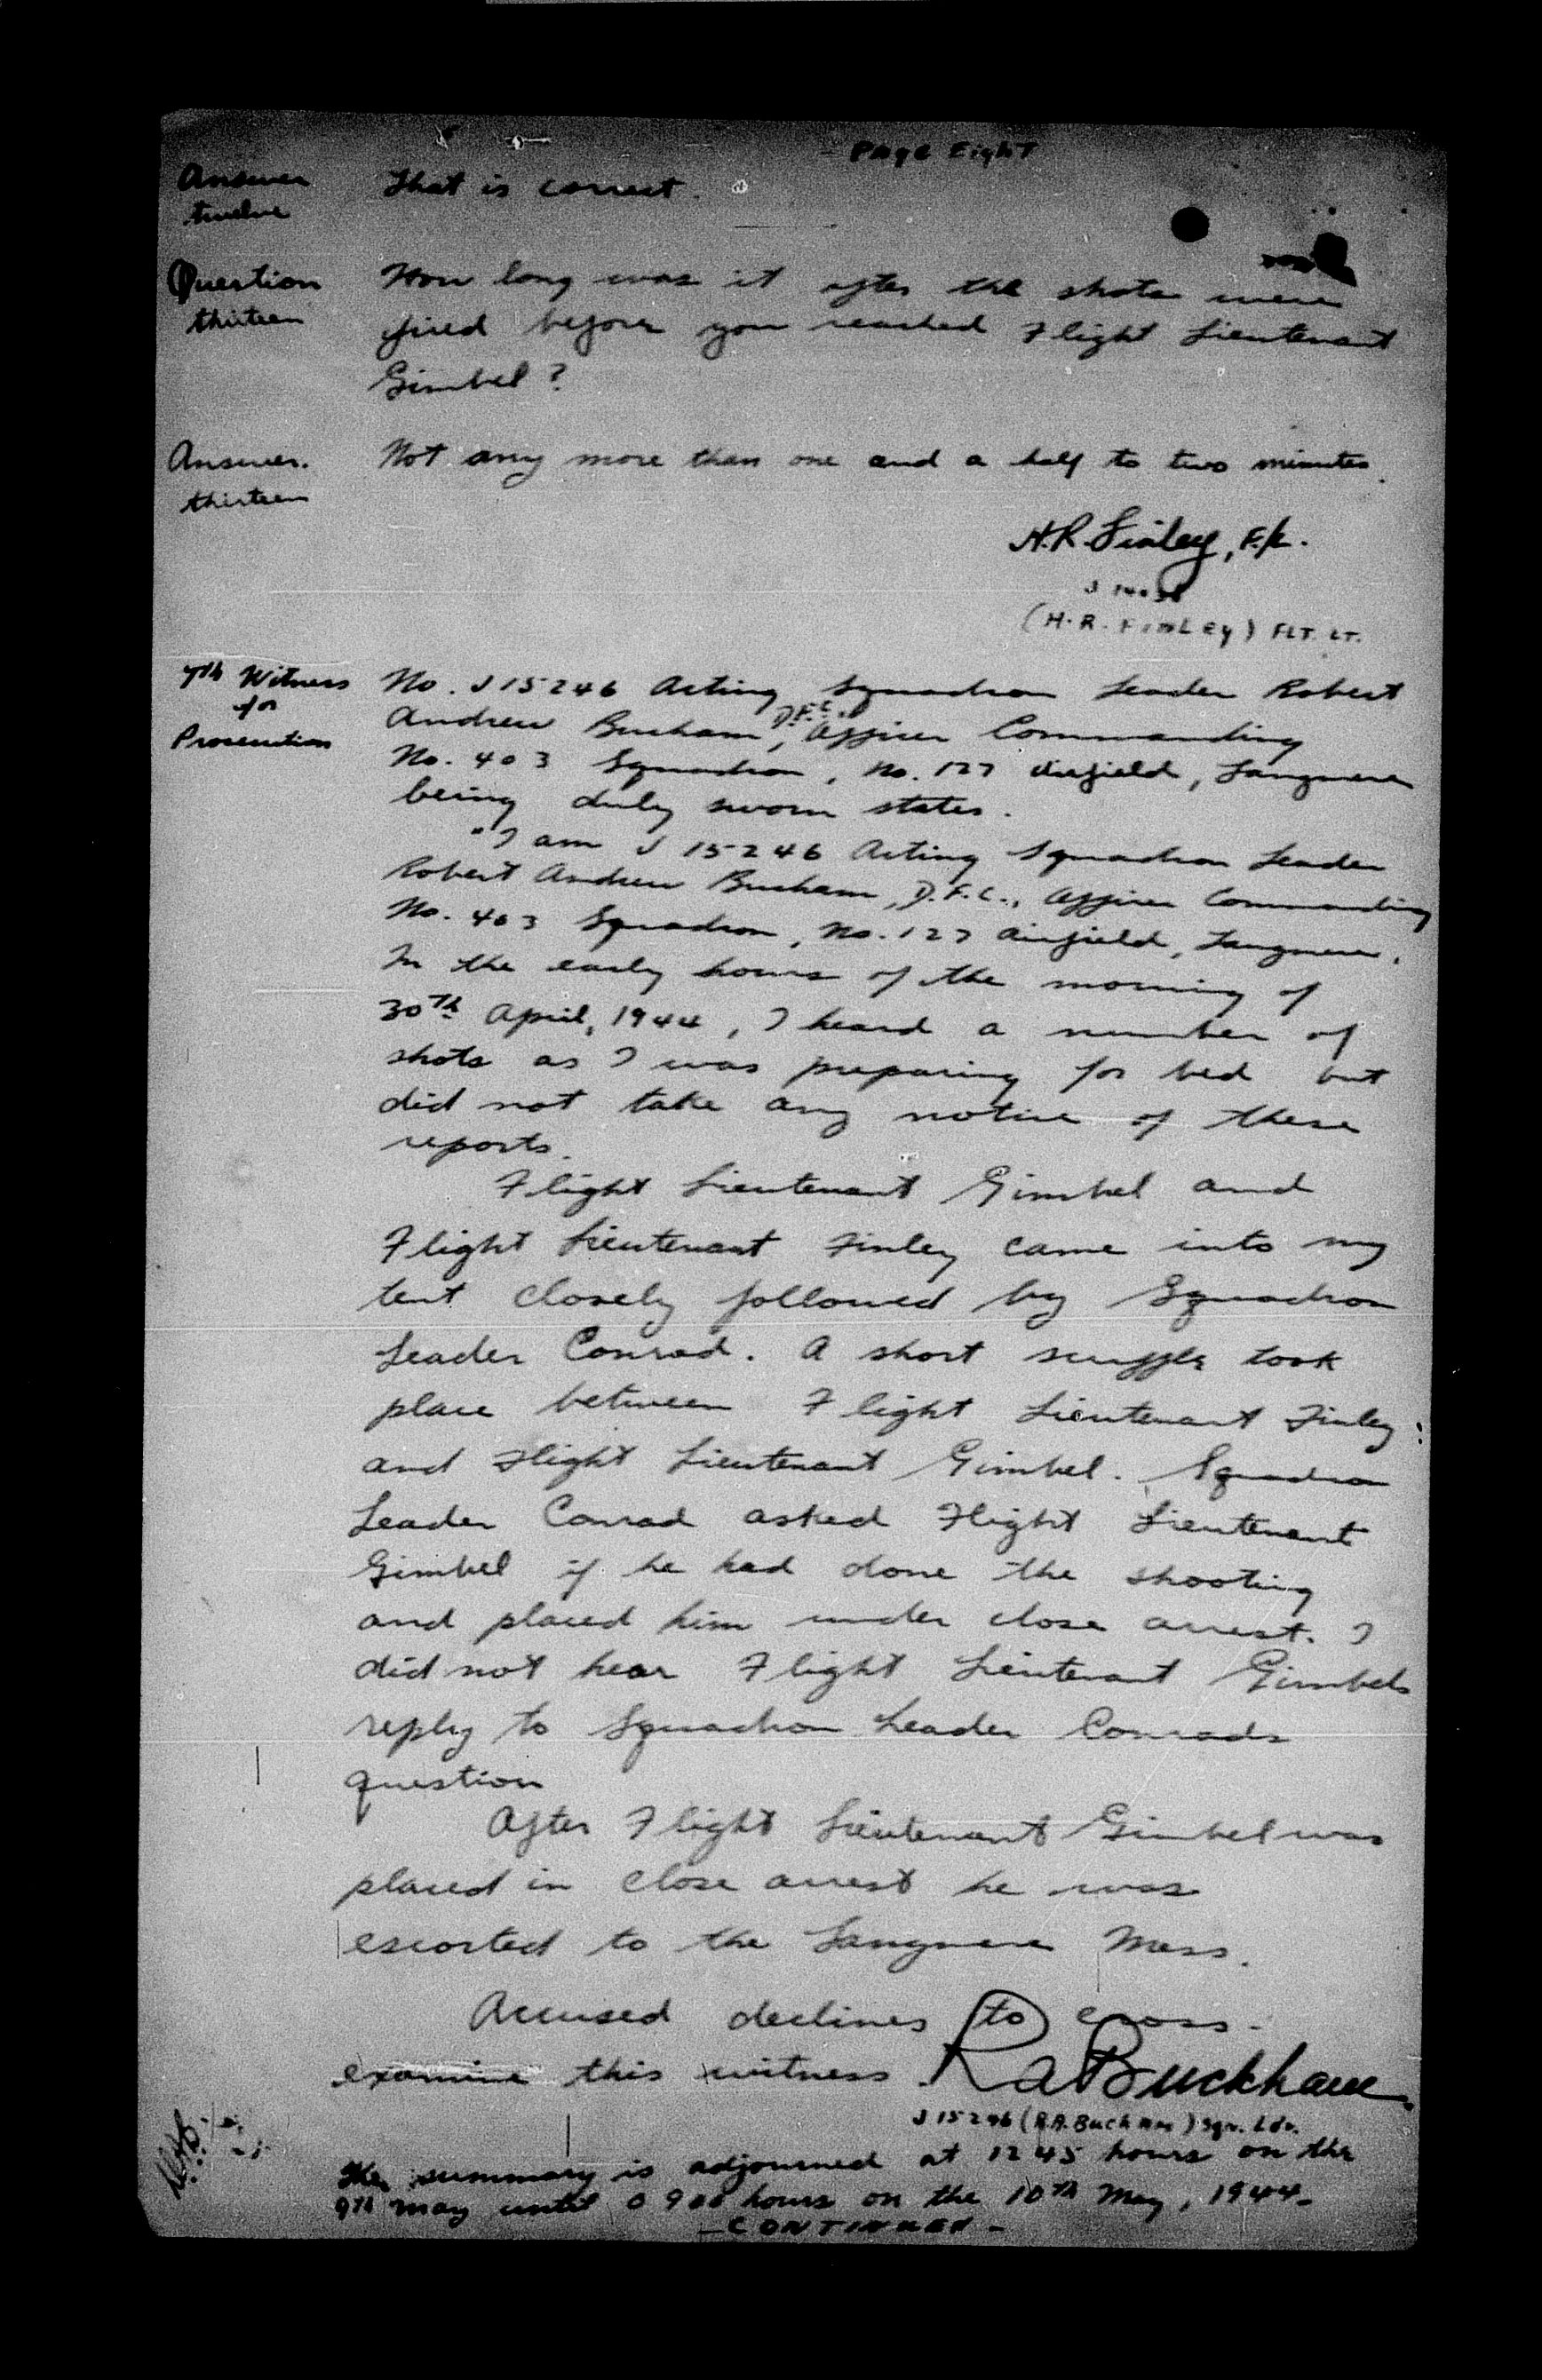 Page Eight
Answer twelve That is correct.
Question thirteen How long was it after the shots were
fired before you reached Flight Lieutenant
Gimbel?
Answer. thirteen Not any more than one and a half to two minutes.
H.R. Finley, F/L.
(H.R. Finley) FLT. LT.
7th Witness for Prosecution No. J15246 Acting Squadron Leader Robert
Andrew Bucham, D.F.C., Officer Commanding
No. 403 Squadron, No. 127 Airfield, Tangmere
being duly sworn states.
"I am J 15246 Acting Squadron Leader
Robert Andrew Bucham, D.F.C., Officer Commanding
No. 403 Squadron, No. 127 Airfield, Tangmere.
In the early hours of the morning of
30th April, 1944, I heard a number of
shots as I was preparing for bed but
did not take any notice of these
reports.
Flight Lieutenant Gimbel and
Flight Lieutenant Finley came into my
tent closely followed by Squadron
Leader Conrad. A short scuffle took
place between Flight Lieutenant Finley
and Flight Lieutenant Gimbel. Squadron
Leader Conrad asked Flight Lieutenant
Gimbel if he had done the shooting
and placed him under close arrest. I
did not hear Flight Lieutenant Gimbels
reply to Squadron Leader Conrads
question
After Flight Lieutenant Gimbel was
placed in close arrest he was
escorted to the Tangmere Mess.
Accused declines to cross-
examine this witness. RABuckham
J 15246 (R.A. Buckham) Sqn. Ldr.
The summary is adjourned at 1245 hours on the
9th May until 0900 hours on the 10th May, 1944-
- CONTINUED -